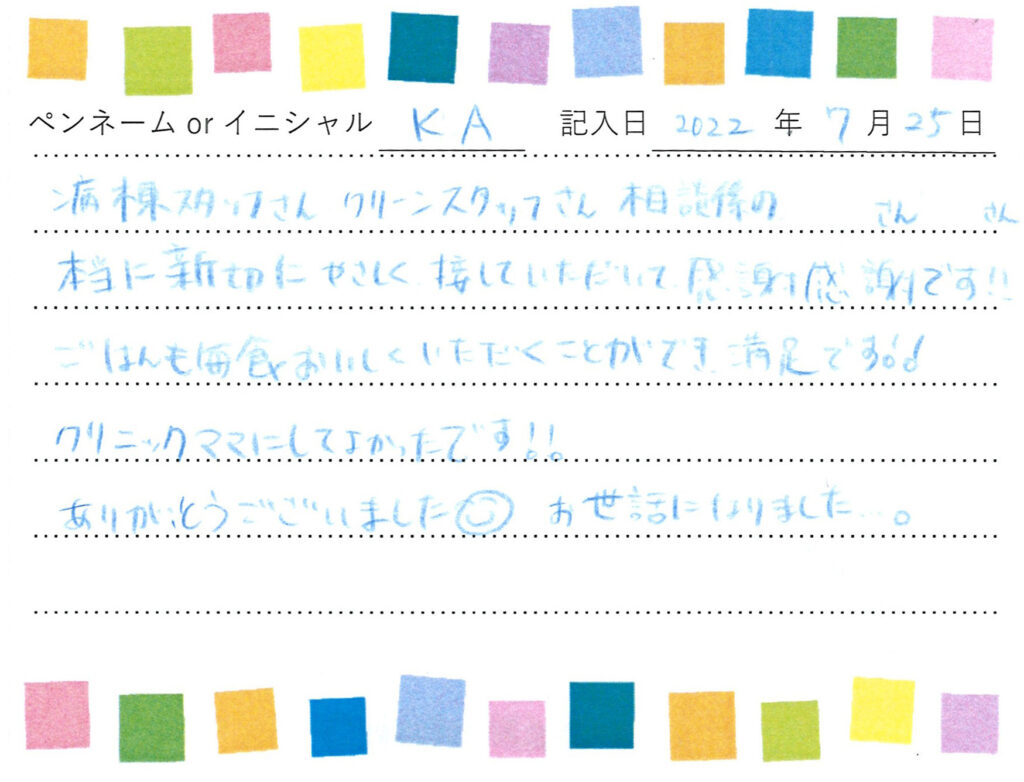 ペンネーム or イニシャル KA 記入日 2022 年 7 月 25 日
病棟スタッフさん クリーンスタッフさん 相談係の さん さん
本当に新切に やさしく 接していただいて 感謝感謝です!!
ごはんも毎食おいしくいただくことができ 満足です!!
クリニックママにしてよかったです!!
ありがとうございました☺ お世話になりました…。